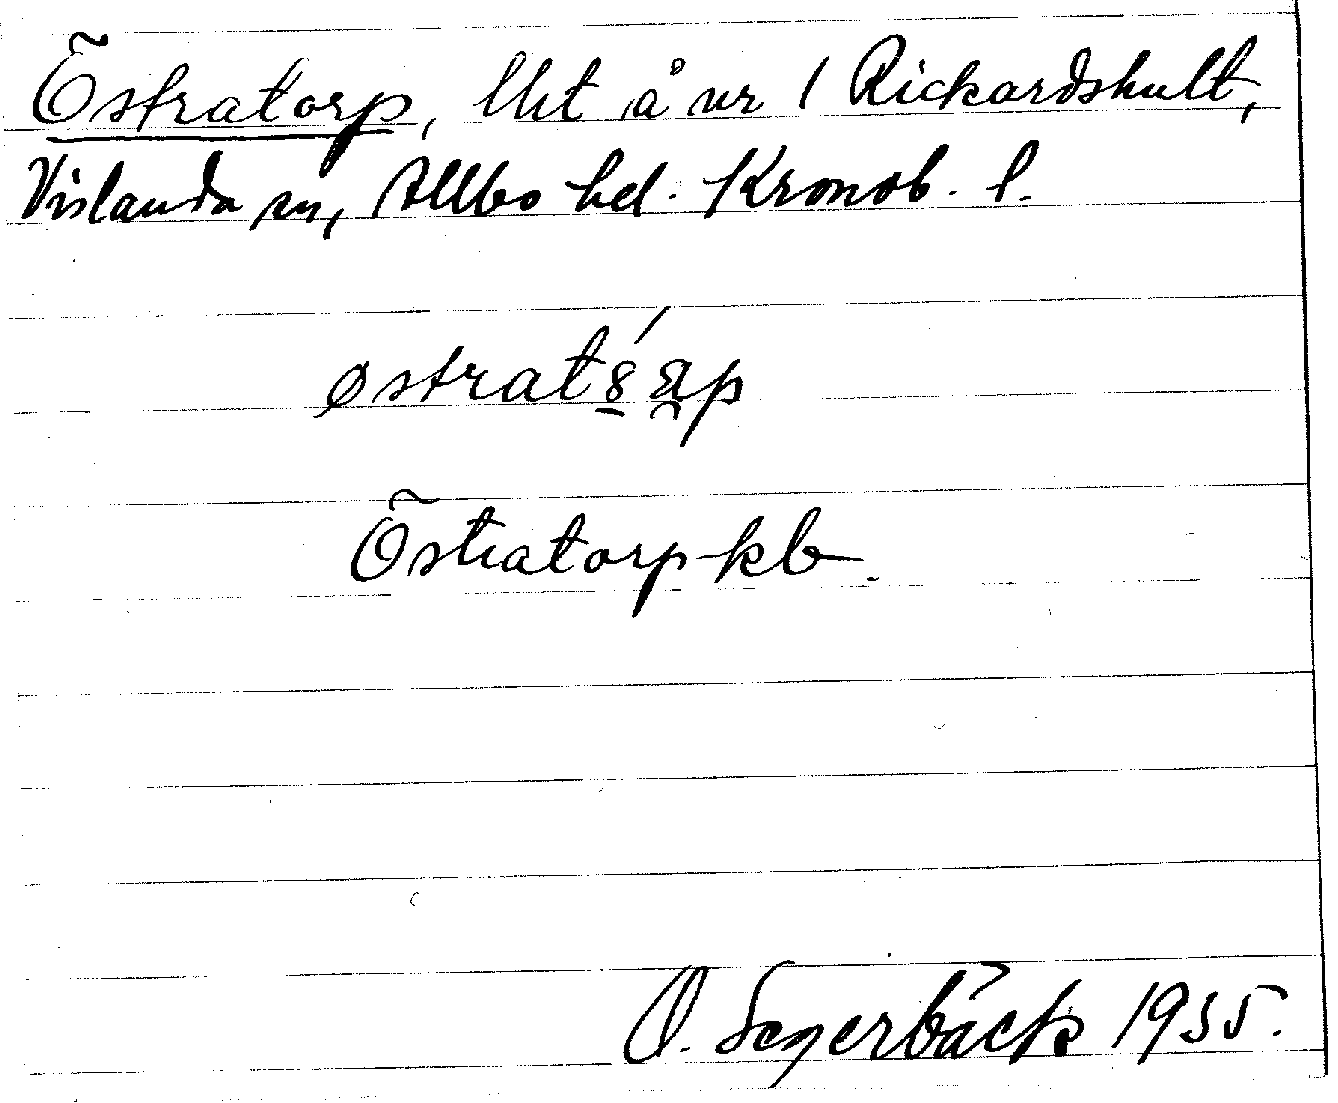 Östratorp, lht å nr 1 Rickardshult,
Vislanda sn, Allbo hd. Kronob. l.
Östratorp kb.
O. Segerbäck 1935.